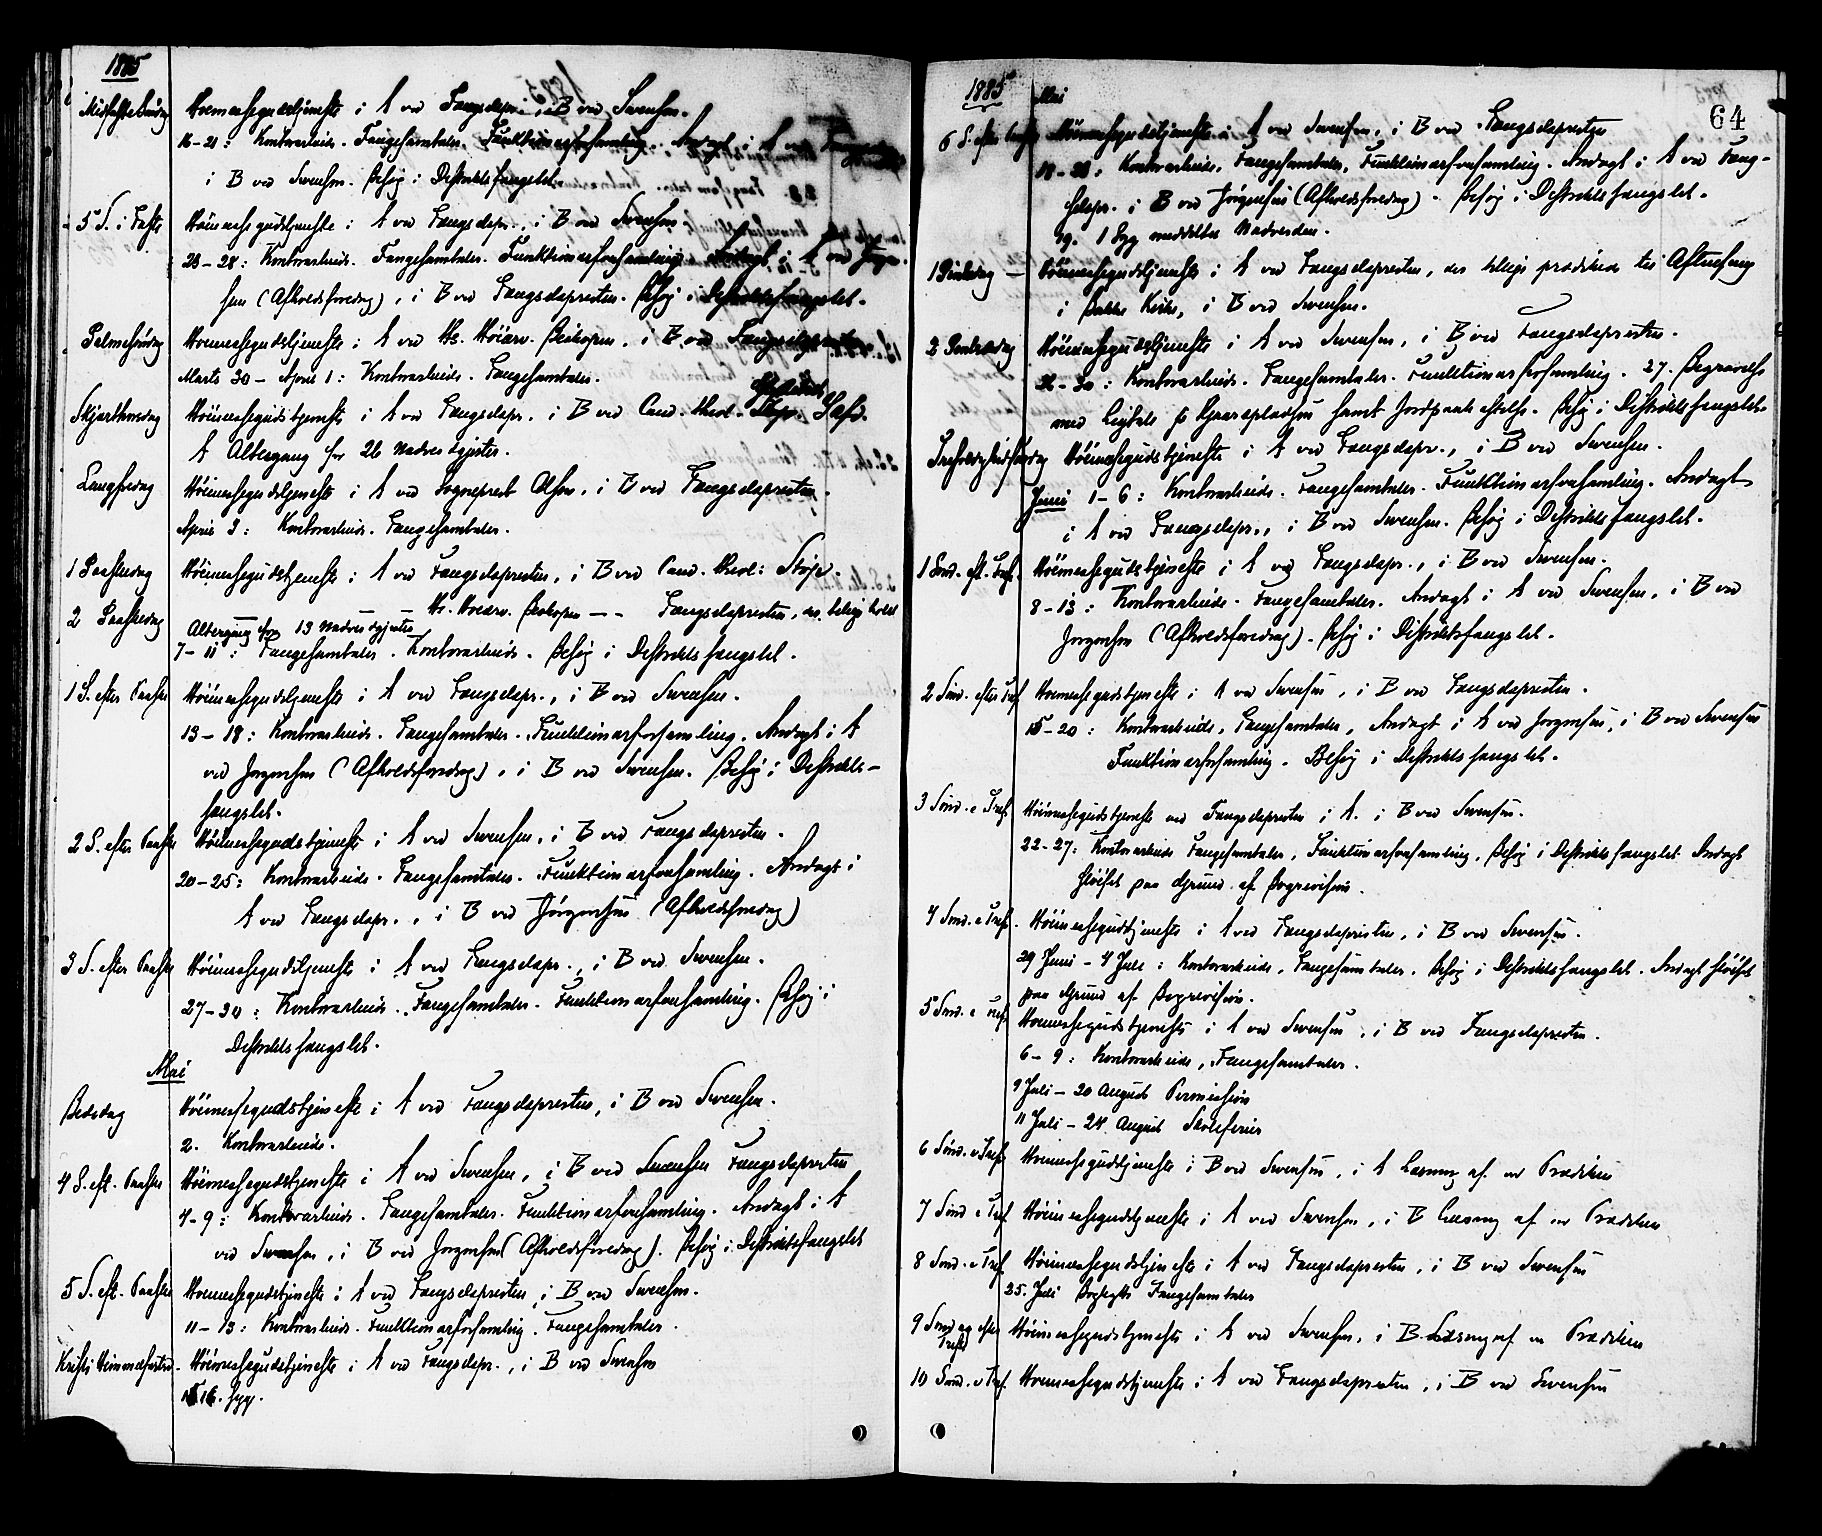 1885
Midfaste Søndag Høimessegudstjeneste i A ved Fangsdepr., i B ved Svensen.
16-21: Kontorarbeide. Fangesamtaler. Funktionærforsamling. Andagt i A ved
i B ved Svensen. Besøg i Distriktsfængslet.
5 S. i Faste Høimessegudstjeneste i A ved Fangsdepr., i B ved Svensen.
23-28: Kontorarbeide. Fangesamtaler. Funktionærforsamling. Andagt i A ved Jørgen-
sen (Afholdsforedrag), i B ved Fangsdepresten. Besøg i Distriktsfængslet.
Palmesøndag Høimessegudstjeneste i A ved Hr. Høiærv. Biskopen, i B ved Fangsdepresten.
Marts 30 - April 1: Kontorarbeide. Fangesamtaler.
Skjærthorsdag Høimessegudstjeneste i A ved Fangsdepr. i B ved Cand. theol.
A Altergang for 26 Nadvergjester.
Langfredag Høimessegudstjeneste i A ved Sogneprest Olsen, i B ved Fangsdepresten.
April 3: Kontorarbeide. Fangesamtaler.
1 Paaskedag Høimessegudstjeneste i A ved Fangsdepresten, i B ved Cand. theol:
2 Paaskedag Hr. Høiærv. Biskopen - - Fangsdepresten, der tillige holdt
Altergang for 13 Nadvergjester
7-11: Fangesamtaler. Kontorarbeide. Besøg i Distriktsfængslet.
1 S. efter Paaske Høimessegudstjeneste i A ved Fangsdepr., i B ved Svensen.
13-18: Kontorarbeide. Fangesamtaler. Funktionærforsamling. Andagt i A
ved Jørgensen (Afholdsforedrag), i B ved Svensen. Besøg i Distrikts-
fængslet.
2 S. efter Paaske Høimessegudstjeneste i A ved Svensen, i B ved Fangsdepresten.
20-25: Kontorarbeide. Fangesamtaler. Funktionærforsamling. Andagt i
A ved Fangsdepr., i B ved Jørgensen (Afholdsforedrag)
3 S. efter Paaske Høimessegudstjeneste i A ved Fangsdepr., i B ved Svensen.
27-30: Kontorarbeide. Fangesamtaler. Funktionærforsamling. Besøg i
Distriktsfængslet.
Mai
Bededag Høimessegudstjeneste i A ved Fangsdepresten, i B ved Svensen.
2. Kontorarbeide.
4 S. eft. Paaske Høimessegudstjeneste i A ved Svensen, i B ved Svensen Fangsdepresten
4-9: Kontorarbeide. Fangesamtaler. Funktionærforsamling. Andagt i A
ved Svensen, i B ved Jørgensen (Afholdsforedrag). Besøg i Distriktsfængslet
5 S. eft. Paaske Høimessegudstjeneste i A ved Fangsdepresten, i B ved Svensen.
11-13: Kontorarbeide. Funktionærforsamling. Fangesamtaler.
Kristi Himmelfartsd. Høimessegudstjeneste i A ved Fangsdepr., i B ved Svensen
16. Syg.
1885 Mai
64
6 S. efter Paaske Høimessegudstjeneste i A ved Svensen, i B ved Fangsdepresten
18-23: Kontorarbeide, Fangesamtaler, Funktionærforsamling. Andagt i A ved Fang-
sdepr. i B ved Jørgensen (Afholdsforedrag). Besøg i Distriktsfængslet.
19. 1 Syg meddeltes Nadverden.
1 Pintsedag Høimessegudstjeneste i A ved Fangsdepresten, der tillige prædikede til Aftensang
i Bakke Kirke, i B ved Svensen.
2 Pintsedag Høimessegudstjeneste i A ved Svensen, i B ved Fangsdepresten.
26-30: Kontorarbeide. Fangesamtaler. Funktionærforsamling. 27. Begravelse
med Ligtale paa Gravpladsen samt Jordpaakastelse. Besøg i Distriktsfængslet.
Trefoldighedssøndag Høimessegudstjeneste i A ved Fangsdepr., i B ved Svensen.
Juni 1-6: Kontorarbeide. Fangesamtaler. Funktionærforsamling. Andagt
i A ved Fangsdepr., i B ved Svensen. Besøg i Distriktsfængslet.
1 Sønd. eft. Tref. Høimessegudstjeneste i A ved Fangsdepr., i B ved Svensen.
8-13: Kontorarbeide. Fangesamtaler. Andagt i A ved Svensen, i B ved
Jørgensen (Afholdsforedrag). Besøg i Distriktsfængslet.
2 Sønd. efter Tref Høimessegudstjeneste i A ved Svensen, i B ved Fangsdepresten.
15-20: Kontorarbeide, Fangesamtaler, Andagt i A ved Jørgensen, i B ved Svensen
Funktionærforsamling. Besøg i Distriktsfængslet.
3 Sønd. e Tref. Høimessegudstjeneste ved Fangsdepresten i A. i B ved Svensen.
22-27: Kontorarbeide Fangesamtaler, Funktionærforsamling, Besøg i Distriktsfængslet. Andagt
sløifet paa Grund af Bogrevision.
4 Sønd. e Tref. Høimessegudstjeneste i A ved Fangsdepresten, i B ved Svensen.
29 Juni - 4 Juli: Kontorarbeide, Fangesamtaler. Besøg i Distriktsfængslet. Andagt sløifet
paa Grund af Bogrevision.
5 Sønd. e Tref. Høimessegudstjeneste i A ved Svensen, i B ved Fangsdepresten.
6-9: Kontorarbeide, Fangesamtaler.
9 Juli - 20 August Permission
11 Juli - 24 August Skoleferier
6 Sønd. e Tref. Høimessegudstjeneste i B ved Svensen, i A Læsning af en Prædiken
7 Sønd e Tref. Høimessegudstjeneste i A ved Svensen, i B Læsning af en Prædiken
8 Sønd. e Tref. Høimessegudstjeneste i A ved Fangsdepresten, i B ved Svensen
25. Juli Fangesamtaler
9 Søndag efter Tref. Høimessegudstjeneste i A ved Svensen, i B Læsning af en Prædiken
10 Sønd. e Tref. Høimessegudstjeneste i A ved Fangsdepresten, i B ved Svensen